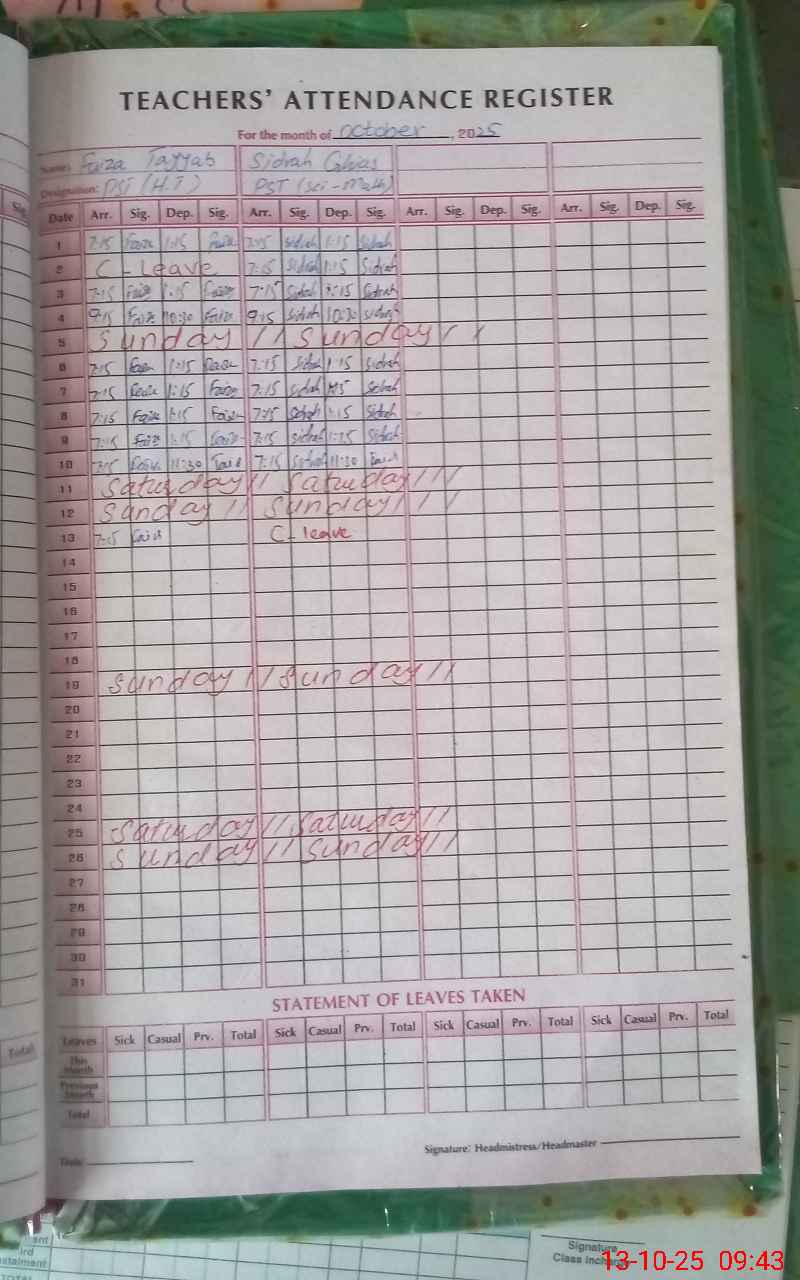 TEACHERS' ATTENDANCE REGISTER
For the month of October, 2025
Name: Faiza Tayyab Sidrah
Designation: PST (H.T) PST (Sci-Math)
Date Arr. Sig. Dep. Sig. Arr. Sig. Dep. Sig. Arr. Sig. Dep. Sig. Arr. Sig. Dep. Sig.
1 7:15 Faiza 1:15 Faiza 7:15 Sidrah 1:15 Sidrah
2 C-Leave 7:15 Sidrah 1:15 Sidrah
3 7:15 Faiza 1:15 Faiza 7:15 Sidrah 1:15 Sidrah
4 9:15 Faiza 10:30 Faiza 9:15 Sidrah 10:30 Sidrah
5 Sunday // Sunday //
6 7:15 Faiza 1:15 Faiza 7:15 Sidrah 1:15 Sidrah
7 7:15 Faiza 1:15 Faiza 7:15 Sidrah 1:15 Sidrah
8 7:15 Faiza 1:15 Faiza 7:15 Sidrah 1:15 Sidrah
9 7:15 Faiza 1:15 Faiza 7:15 Sidrah 1:15 Sidrah
10 7:15 Faiza 11:30 Faiza 7:15 Sidrah 11:30
11 Saturday // Saturday ///
12 Sunday // Sunday ///
13 7:15 Faiza C-leave
14
15
16
17
18
19 Sunday // Sunday //
20
21
22
23
24
25 Saturday // Saturday //
26 Sunday // Sunday //
27
28
29
30
31
STATEMENT OF LEAVES TAKEN
Leaves Sick Casual Prv. Total Sick Casual Prv. Total Sick Casual Prv. Total Sick Casual Prv. Total
This Month
Previous Month
Total
Signature: Headmistress/Headmaster
Date:
Total
Signature
Class Incharge
13-10-25 09:43